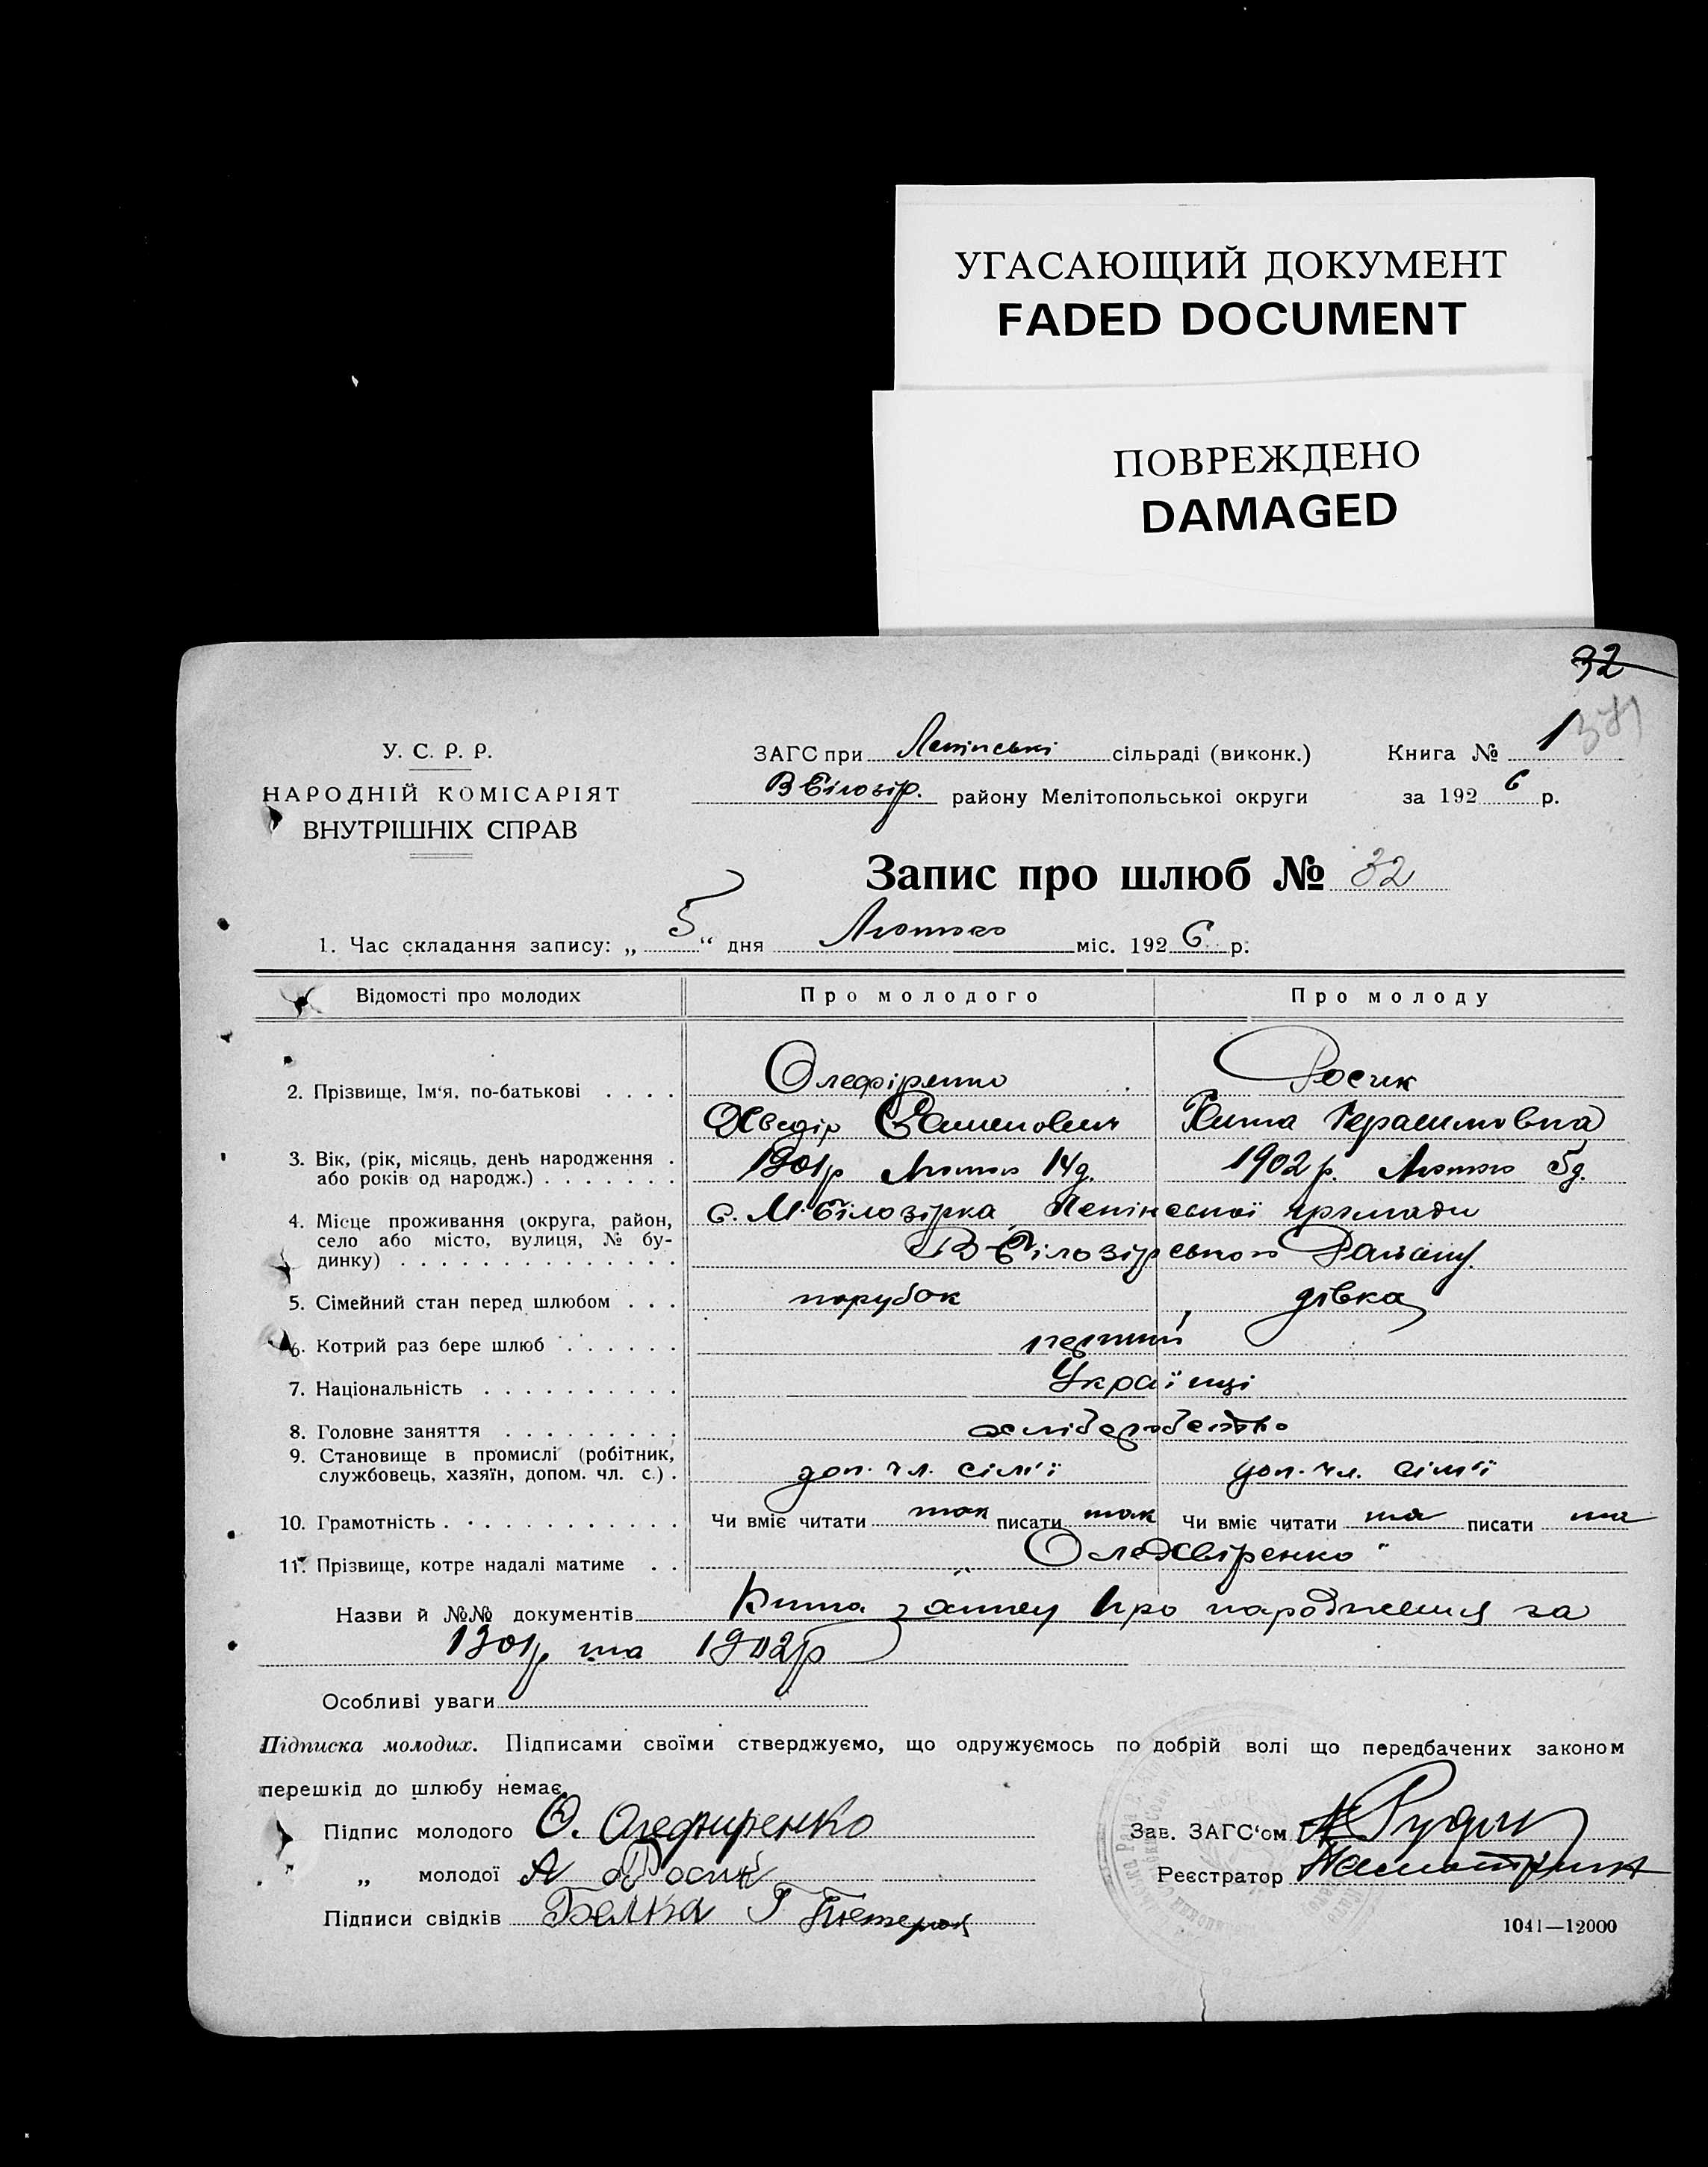 УГАСАЮЩИЙ ДОКУМЕНТ
FADED DOCUMENT
ПОВРЕЖДЕНО
DAMAGED
32
У. С. Р. Р.
НАРОДНІЙ КОМІСАРІЯТ
ВНУТРІШНІХ СПРАВ
ЗАГС при Ленінські сільраді (виконк.)
Книга № 1
В Білозір. району Мелітопольської округи
за 1926 р.
Запис про шлюб № 32
1. Час складання запису: „ 5 “ дня Лютого міс. 1926 р.
Відомості про молодих
Про молодого
Про молоду
2. Прізвище, Ім‘я, по-батькові . . . .
Олефіренко
Росик
Хведір Семенович
Ганна Герасимовна
3. Вік, (рік, місяць, день народження .
або років од народж.) . . . . . . .
1901р Лютого 14д.
1902р. Лютого 5д.
4. Місце проживання (округа, район,
село або місто, вулиця, № бу-
динку) . . . . . . . . . . . . . .
с. М. Білозірка Ленінської громади
В-Білозірського Району.
5. Сімейний стан перед шлюбом . . .
порубок
дівка
6. Котрий раз бере шлюб . . . . . .
перший
7. Національність . . . . . . . . . .
Українці
8. Головне заняття . . . . . . . . .
хліборобство
9. Становище в промислі (робітник,
службовець, хазяїн, допом. чл. с.) .
доп. чл. сім'ї
доп. чл. сім'ї
10. Грамотність . . . . . . . . . . . .
Чи вміє читати так писати так
Чи вміє читати та писати та
11. Прізвище, котре надалі матиме . .
Олехвіренко
Назви й №№ документів про народження за
1901р та 1902р
Особливі уваги
Підписка молодих. Підписами своїми стверджуємо, що одружуємось по добрій волі що передбачених законом
перешкід до шлюбу немає.
Підпис молодого О. Олефиренко
„ молодої А Росик
Підписи свідків Белка Г
Зав. ЗАГС‘ом
Реєстратор
1041—12000